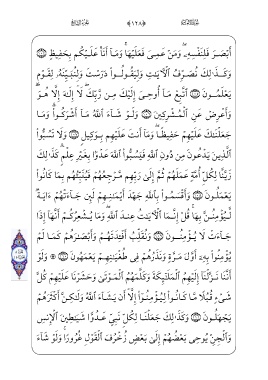 ١٢٨
أَبْصَرَ فَلِنَفْسِهِۦ وَمَنْ عَمِىَ فَعَلَيْهَا وَمَآ أَنَا۠ عَلَيْكُم بِحَفِيظٍ
وَكَذَٰلِكَ نُصَرِّفُ ٱلْـَٔايَٰتِ وَلِيَقُولُوا۟ دَرَسْتَ وَلِنُبَيِّنَهُۥ لِقَوْمٍ
يَعْلَمُونَ ٱتَّبِعْ مَآ أُوحِىَ إِلَيْكَ مِن رَّبِّكَ لَآ إِلَٰهَ إِلَّا هُوَ
وَأَعْرِضْ عَنِ ٱلْمُشْرِكِينَ وَلَوْ شَآءَ ٱللَّهُ مَآ أَشْرَكُوا۟ وَمَا
جَعَلْنَٰكَ عَلَيْهِمْ حَفِيظًا وَمَآ أَنتَ عَلَيْهِم بِوَكِيلٍ وَلَا تَسُبُّوا۟
ٱلَّذِينَ يَدْعُونَ مِن دُونِ ٱللَّهِ فَيَسُبُّوا۟ ٱللَّهَ عَدْوًۢا بِغَيْرِ عِلْمٍ كَذَٰلِكَ
زَيَّنَّا لِكُلِّ أُمَّةٍ عَمَلَهُمْ ثُمَّ إِلَىٰ رَبِّهِم مَّرْجِعُهُمْ فَيُنَبِّئُهُم بِمَا كَانُوا۟
يَعْمَلُونَ وَأَقْسَمُوا۟ بِٱللَّهِ جَهْدَ أَيْمَٰنِهِمْ لَئِن جَآءَتْهُمْ ءَايَةٌ
لَّيُؤْمِنُنَّ بِهَا قُلْ إِنَّمَا ٱلْـَٔايَٰتُ عِندَ ٱللَّهِ وَمَا يُشْعِرُكُمْ أَنَّهَآ إِذَا
جَآءَتْ لَا يُؤْمِنُونَ وَنُقَلِّبُ أَفْـِٔدَتَهُمْ وَأَبْصَٰرَهُمْ كَمَا لَمْ
يُؤْمِنُوا۟ بِهِۦٓ أَوَّلَ مَرَّةٍ وَنَذَرُهُمْ فِى طُغْيَٰنِهِمْ يَعْمَهُونَ وَلَوْ
أَنَّنَا نَزَّلْنَآ إِلَيْهِمُ ٱلْمَلَٰٓئِكَةَ وَكَلَّمَهُمُ ٱلْمَوْتَىٰ وَحَشَرْنَا عَلَيْهِمْ كُلَّ
شَىْءٍ قُبُلًا مَّا كَانُوا۟ لِيُؤْمِنُوٓا۟ إِلَّآ أَن يَشَآءَ ٱللَّهُ وَلَٰكِنَّ أَكْثَرَهُمْ
يَجْهَلُونَ وَكَذَٰلِكَ جَعَلْنَا لِكُلِّ نَبِىٍّ عَدُوًّا شَيَٰطِينَ ٱلْإِنسِ
وَٱلْجِنِّ يُوحِى بَعْضُهُمْ إِلَىٰ بَعْضٍ زُخْرُفَ ٱلْقَوْلِ غُرُورًا وَلَوْ شَآءَ